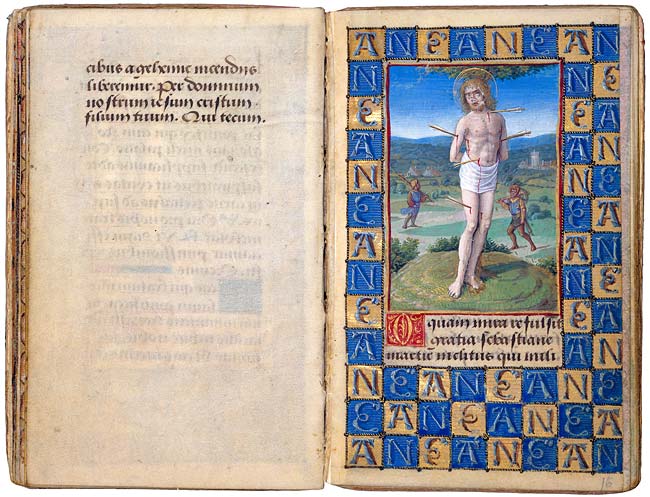 ANEANEAN
cibus a gehenne incendijs
liberemur. Per dominum
nostrum iesum cristum
filium tuum. Qui tecum.
O quam mira refulsit
gratia sebastiane
martir inclitus qui mili
NEANEANE
EANEANEA
ANEANEAN
16